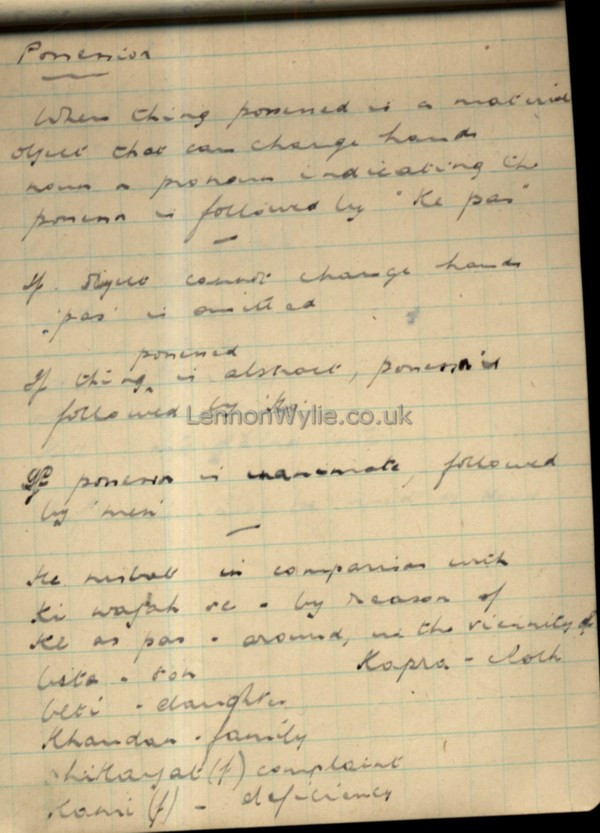 Possession
When thing possessed is a material
object that can change hands
noun or pronoun indicating the
possessor is followed by "Ke pas"
If object cannot change hands
'pas' is omitted
possessed
If thing is abstract, possessor is
followed by
LennonWylie.co.uk
If possessor is inanimate, followed
by 'men'
Ke nisbat in comparison with
Ki wajah se - by reason of
Ke as pas - around, in the vicinity of
beta - son Kapra - cloth
beti - daughter
Khandan - family
shikayat (f) complaint
Kami (f) - deficiency